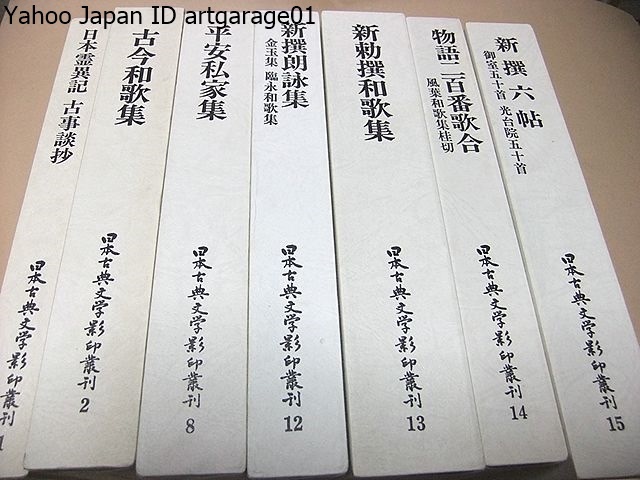 Yahoo Japan ID artgarage01
日本霊異記 古事談抄
日本古典文学影印叢刊
1
古今和歌集
日本古典文学影印叢刊
2
平安私家集
日本古典文学影印叢刊
8
新撰朗詠集
金玉集 臨永和歌集
日本古典文学影印叢刊
12
新勅撰和歌集
日本古典文学影印叢刊
13
物語二百番歌合
風葉和歌集桂切
日本古典文学影印叢刊
14
新撰六帖
御室五十首 光台院五十首
日本古典文学影印叢刊
15